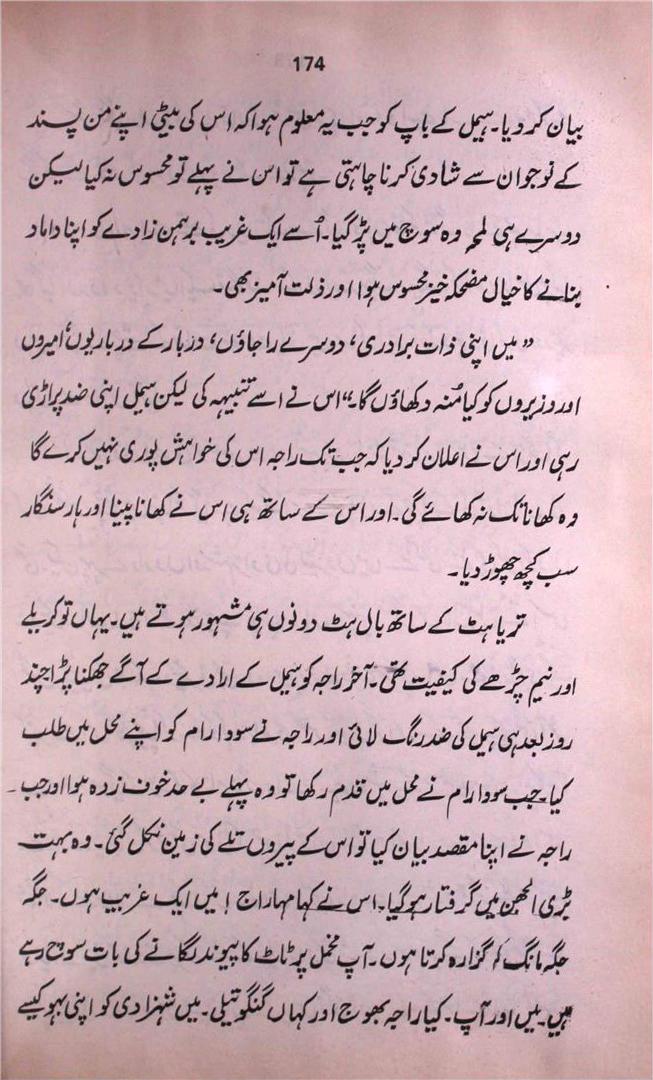 174
بیان کر دیا۔ سیمل کے باپ کو جب یہ معلوم ہوا کہ اس کی بیٹی اپنے من پسند
کے نوجوان سے شادی کرنا چاہتی ہے تو اس نے پہلے تو محسوس نہ کیا لیکن
دوسرے ہی لمحہ وہ سوچ میں پڑ گیا۔ اُسے ایک غریب برہمن زادے کو اپنا داماد
بنانے کا خیال مضحکہ خیز محسوس ہوا اور ذلت آمیز بھی۔
”میں اپنی ذات برادری، دوسرے راجاؤں، دربار کے درباریوں، امیروں
اور وزیروں کو کیا مُنہ دکھاؤں گا۔“ اس نے اسے تنبیہہ کی لیکن سیمل اپنی ضد پر اڑی
رہی اور اس نے اعلان کر دیا کہ جب تک راجہ اس کی خواہش پوری نہیں کرے گا
وہ کھانا تک نہ کھائے گی۔ اور اس کے ساتھ ہی اس نے کھانا پینا اور ہار سنگار
سب کچھ چھوڑ دیا۔
تریا ہٹ کے ساتھ بال ہٹ دونوں ہی مشہور ہوتے ہیں۔ یہاں تو کریلے
اور نیم چڑھے کی کیفیت تھی۔ آخر راجہ کو سیمل کے ارادے کے آگے جھکنا پڑا چند
روز بعد ہی سیمل کی ضد رنگ لائی اور راجہ نے سودا رام کو اپنے محل میں طلب
کیا۔ جب سودا رام نے محل میں قدم رکھا تو وہ پہلے بے حد خوف زدہ ہوا اور جب
راجہ نے اپنا مقصد بیان کیا تو اس کے پیروں تلے کی زمین نکل گئی۔ وہ بہت
بڑی الجھن میں گرفتار ہو گیا۔ اس نے کہا مہاراج! میں ایک غریب ہوں۔ جگہ
جگہ مانگ کر گزارہ کرتا ہوں۔ آپ مخمل پر ٹاٹ کا پیوند لگانے کی بات سوچ رہے
ہیں۔ میں اور آپ۔ کیا راجہ بھوج اور کہاں گنگو تیلی۔ میں شہزادی کو اپنی بہو کیسے